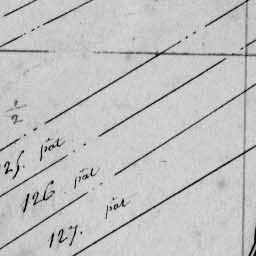 1/2
125. pat
126 pat
127. pat